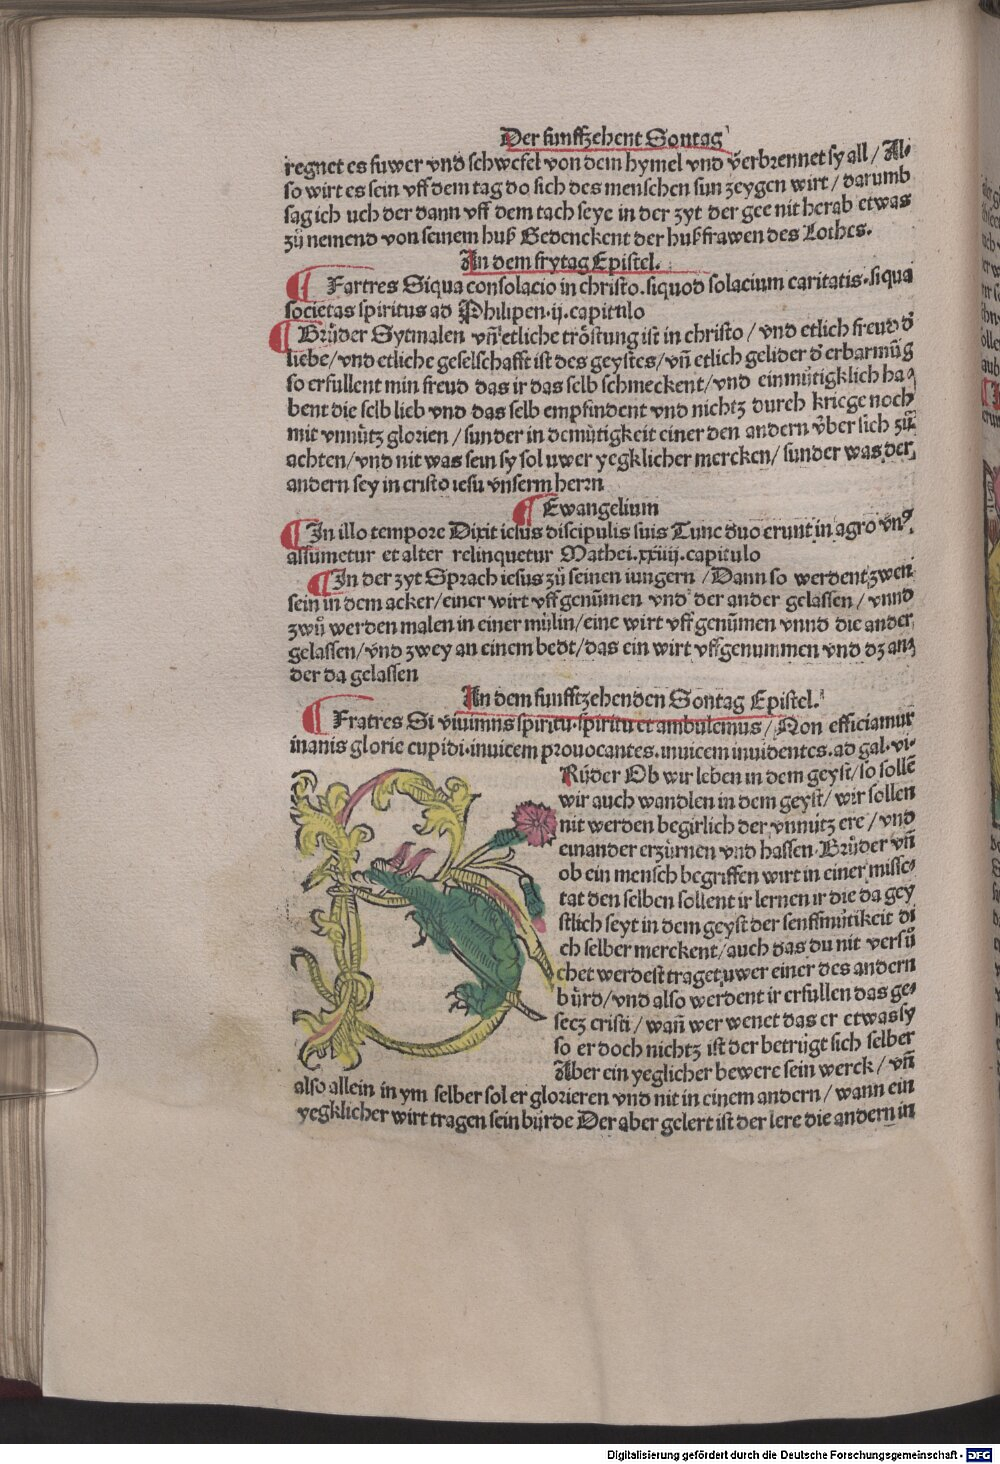 Der funffzehent Sontag
regnet es fuwer vnd schwefel von dem hymel vnd v̈erbrennet sy all / Al-
so wirt es sein vff dem tag do sich des menschen sun zeygen wirt / darumb
sag ich uch der dann vff dem tach seye in der zyt der gee nit herab etwas
zů nemend von seinem huß Gedenckent der hußfrawen des Lothes.
In dem frytag Epistel.
Fartres Siqua consolacio in christo. siquod solacium caritatis. siqua
societas spiritus ad Philipen. ij. capitulo
Brůder Sytmalen vñ etliche tröstung ist in christo / vnd etlich freud d'
liebe / vnd etliche geselschafft ist des geystes / vñ etlich gelider d' erbarmūg
so erfullent min freud das ir das selb schmeckent / vnd einmůtigklich ha-
bent die selb lieb vnd das selb empfindent vnd nichtz durch kriege noch
mit vnnütz glorien / sunder in demütigkeit einer den andern v̈ber sich zů
achten / vnd nit was sein sy sol uwer yegklicher mercken / sunder was der
andern sey in cristo iesu vnserm herrn
Ewangelium
In illo tempore Dixit iesus discipulis suis Tunc duo erunt in agro vnꝰ
assumetur et alter relinquetur Mathei. xxiiij. capitulo
In der zyt Sprach iesus zů seinen iungern / Dann so werdent zwen
sein in dem acker / einer wirt vff genūmen vnd der ander gelassen / vnnd
zwů werden malen in einer mülin / eine wirt vff genūmen vnnd die ander
gelassen / vnd zwey an einem bedt / das ein wirt vffgenummen vnd dz an-
der da gelassen
In dem funfftzehenden Sontag Epistel.
Fratres Si viuimus spiritu. spiritu et ambulemus / Non efficiamur
inanis glorie cupidi. inuicem prouocantes. inuicem inuidentes. ad gal. vi.
BRüder Ob wir leben in dem geyst / so sollē
wir auch wandlen in dem geyst / wir sollen
nit werden begirlich der vnnütz ere / vnd
einander erzürnen vnd hassen. Brůder vñ
ob ein mensch begriffen wirt in einer misse-
tat den selben sollent ir lernen ir die da gey
stlich seyt in dem geyst der senffmütikeit di
ch selber merckent / auch das du nit versů
chet werdest traget uwer einer des andern
bürd / vnd also werdent ir erfullen das ge-
secz cristi / wañ wer wenet das er etwas sy
so er doch nichtz ist der betrügt sich selber
Aber ein yeglicher bewere sein werck / vñ
also allein in ym selber sol er glorieren vnd nit in einem andern / wann ein
yegklicher wirt tragen sein bürde Der aber gelert ist der lere die andern in
Digitalisierung gefördert durch die Deutsche Forschungsgemeinschaft - DFG